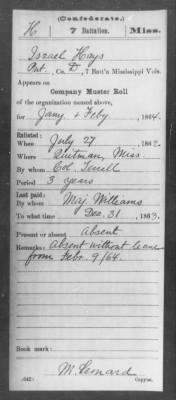 (Confederate.)
H 7 Battalion. Miss.
Israel Hays
Pvt., Co. D, 7 Batt'n Mississippi Vols.
Appears on
Company Muster Roll
of the organization named above,
for Jany & Feby, 1864.
Enlisted:
When July 27, 1862.
Where Quitman, Miss
By whom Col. Terrell
Period 3 years
Last paid:
By whom Maj. Williams
To what time Dec. 31, 1863.
Present or absent Absent
Remarks: Absent without leave
from Febr. 9/64.
Book mark:
M. Leonard
(642) Copyist.